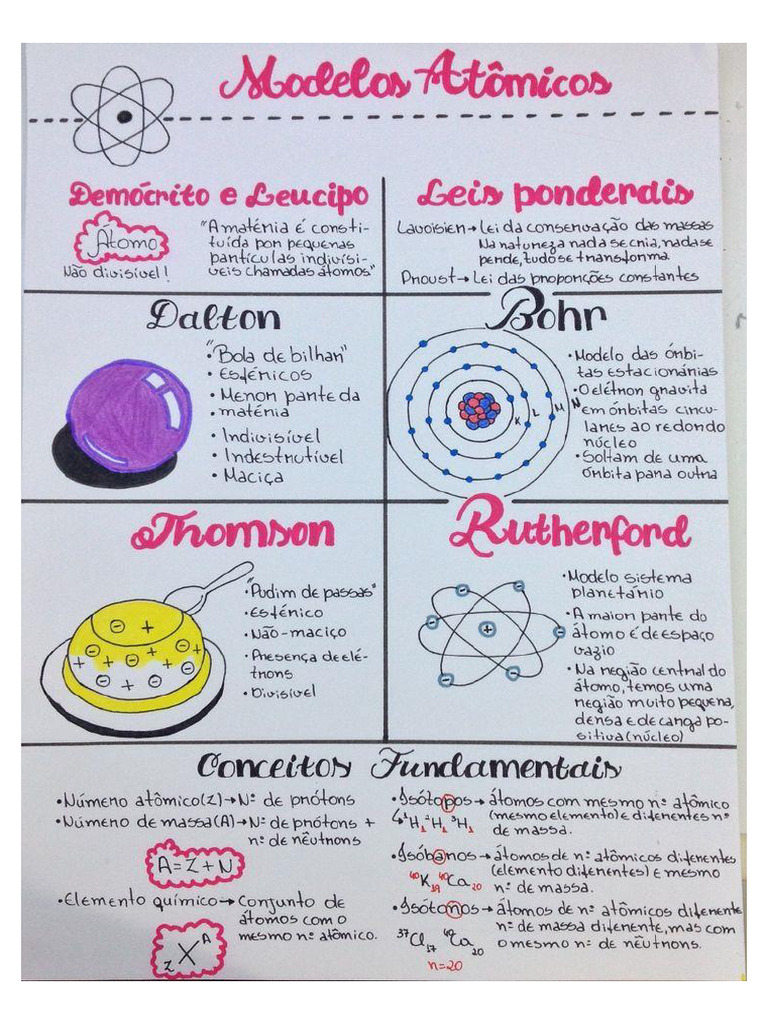 Modelos Atômicos
Demócrito e Leucipo
Átomo
Não divisível!
"A matéria é consti-
tuída por pequenas
partículas indivisí-
veis chamadas átomos"
Leis ponderais
Lavoisier→Lei da conservação das massas
Na natureza nada se cria, nada se
perde, tudo se transforma
Proust→Lei das proporções constantes
Dalton
•"Bola de bilhar"
•Esféricos
•Menor parte da
•matéria
•Indivisível
•Indestrutível
•Maciça
Bohr
K L M N
•Modelo das órbi-
tas estacionárias
•O elétron gravita
em órbitas circu-
lares ao redor do
núcleo
•Soltam de uma
órbita para outra
Thomson
- +
- -
+ + - + +
- + - +
•"Pudim de passas"
•Esférico
•Não-maciço
•Presença de elé-
trons
•Divisível
Rutherford
- -
- + -
- -
•Modelo sistema
planetário
•A maior parte do
átomo é de espaço
vazio
•Na região central do
átomo, temos uma
região muito pequena,
densa e de carga po-
sitiva (núcleo)
Conceitos Fundamentais
•Número atômico(z)→Nº de prótons
•Número de massa(A)→Nº de prótons +
nº de nêutrons
A=Z+N
•Elemento químico→Conjunto de
átomos com o
mesmo nº atômico.
zXᴬ
•Isótopos→átomos com mesmo nº atômico
(mesmo elemento) e diferentes nº
de massa.
↳¹H₁ ²H₁ ³H₁
•Isóbanos→átomos de nº atômicos diferentes
(elemento diferentes) e mesmo
nº de massa.
⁴⁰K₁₉ ⁴⁰Ca₂₀
•Isótonos→átomos de nº atômicos diferente
nº de massa diferente, mas com
o mesmo nº de nêutrons.
³⁷Cl₁₇ ⁴⁰Ca₂₀
n=20